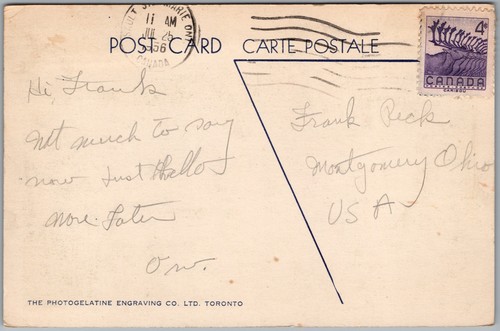 SAULT STE. MARIE ONT.
11 AM
JUL 25
1956
CANADA
POST CARD CARTE POSTALE
4¢
CANADA
CARIBOU
Hi, Frank
Not much to say
now Just Hello
more Later
Frank Peck
Montgomery Ohio
USA
THE PHOTOGELATINE ENGRAVING CO. LTD. TORONTO